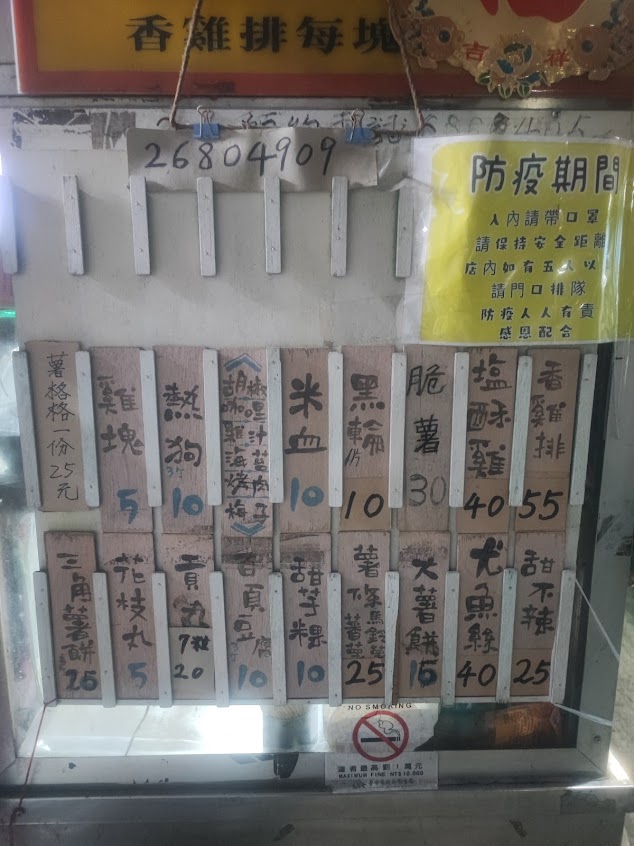 香雞排每塊
吉祥
26804909
防疫期間
入內請帶口罩
請保持安全距離
店內如有五人以
請門口排隊
防疫人人有責
感恩配合
香雞排 55
塩酥雞 40
脆薯 30
黑輪 1片 10
米血 10
熱狗 3片 10
雞塊 5
薯格格一份25元
甜不辣 25
尤魚絲 40
大薯餅 15
薯條 25
甜芋粿 10
百頁豆腐 10
貢丸 7粒 20
花枝丸 5
三角薯餅 25
NO SMOKING
違者最高罰1萬元
MAXIMUM FINE:NT$10,000